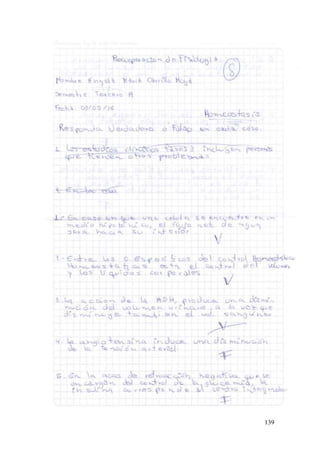 Recuperacion de Fisiología
8
Nombre: Angela María Carrillo Moya
Semestre Tercero A
Fecha: 09/05/16
Homeostasis
Responda Verdadero o Falso en cada caso.
1. Los estudios clínicos fase 3 incluyen personas
que tienen otros problemas.
1.- En caso en que una celula se encuentre en un
medio hipotónico, el flujo neto de agua
será hacia su interior
V
2.- Entre los aspectos del control Homeostático
esta el control del volumen
y los liquidos corporales
V
3. La accion de la ADH, produce una dismi-
nución del volumen urinario, a la vez que
disminuye tambien el vol. sanguineo
V
4. La angiotensina induce una disminución
de la tensión arterial.
F
5. En la asas de retroacción negativa que se
encargan del control de la glucemia, la
insulina corresponde al centro integrador
F
139